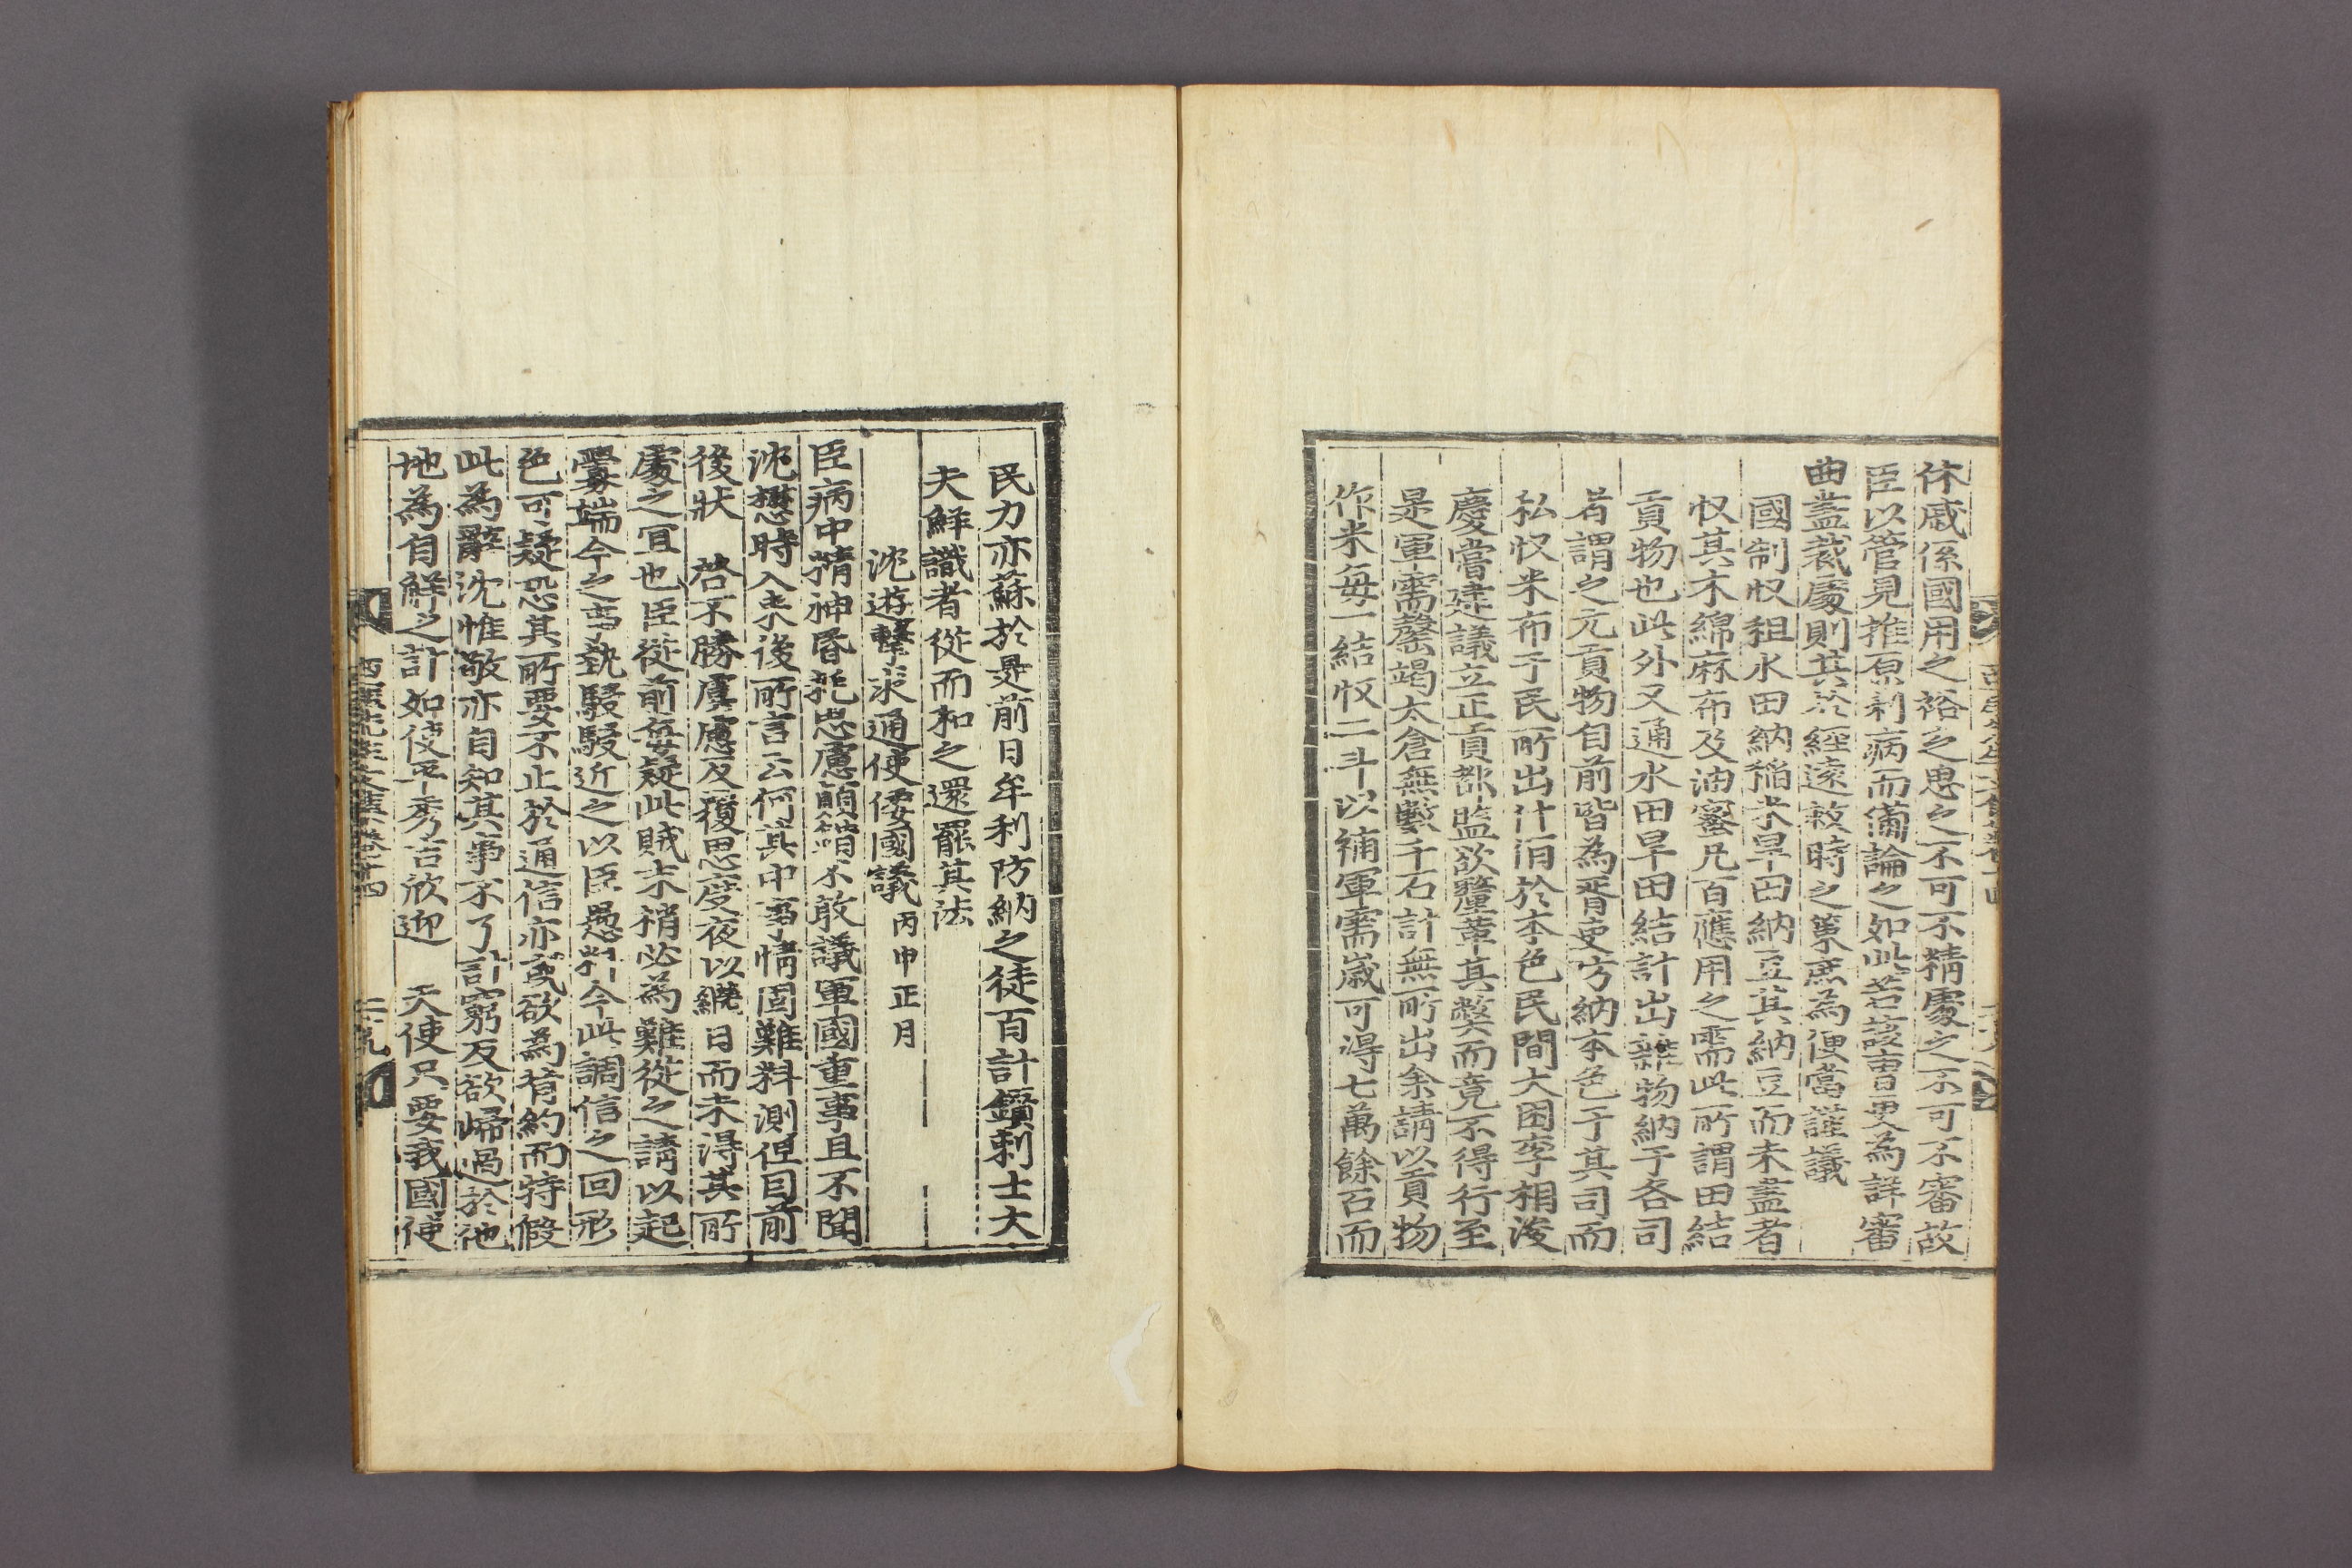 休戚係國用之裕思之不可不精處之不可不審故
臣以管見推原利病而備論之如此若該曹更為詳審
曲盡裁處則其於經遠救時之策庶為便當謹議
國制收租水田納稻米旱田納豆其納豆而未盡者
收其木綿麻布及油蜜凡百應用之需此所謂田結
貢物也此外又通水田旱田結計出雜物納于各司
者謂之元貢物自前皆為胥吏防納本色于其司而
私收米布于民所出什佰於本色民間大困李相浚
慶嘗建議立正貢都監欲釐革其弊而竟不得行至
是軍需罄竭太倉無數千石計無所出余請以貢物
作米每一結收二斗以補軍需歲可得七萬餘石而
民力亦蘇於是前日牟利防納之徒百計鑽刺士大
夫鮮識者從而和之還罷其法
沈遊擊求通使倭國議 丙申正月
臣病中精神昏耗思慮顛錯不敢議軍國重事且不聞
沈懋時入來後所言云何其中事情固難料測但目前
後狀 啓不勝虞慮反覆思度夜以繼日而未得其所
處之宜也臣從前每疑此賊末稍必為難從之請以起
釁端今之事勢駸駸近之以臣愚料今此調信之回形
色可疑恐其所要不止於通信亦或欲為背約而特假
此為辭沈惟敬亦自知其事不了計窮反欲歸過於他
地為自鮮之計如使平秀吉欣迎 天使只要我國使
西厓先生文集卷之十四 二十九